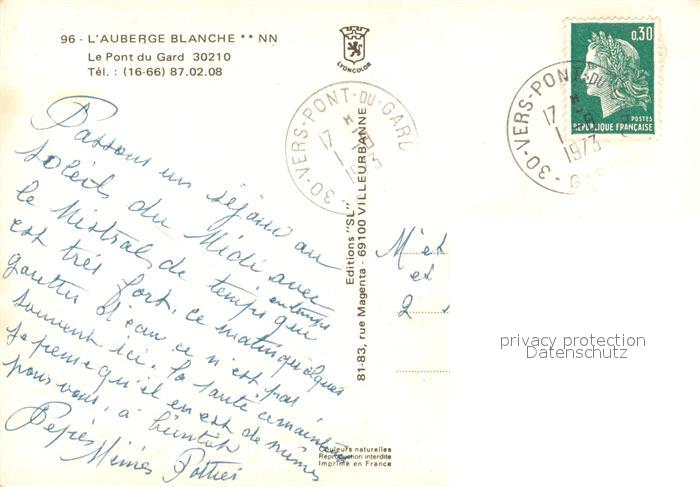 96 - L'AUBERGE BLANCHE ** NN
Le Pont du Gard 30210
Tél. : (16-66) 87.02.08
LYONCOLOR
0,30
POSTES
REPUBLIQUE FRANÇAISE
30-VERS-PONT-DU-GARD
17 H
1973
30-VERS-PONT-DU-
GARD
17 H
1973
Passons un séjour au
soleils du Midi avec
le Mistrals de temps en temps qui
est très fort. ce matin quelques
gouttes d'eau ce n'est pas
souvent ici. la santé se maintien
je pense qu'il en est de mêmes
pour vous, à bientôt
Pépés Mémés Pottier
Editions "SL"
81-83, rue Magenta - 69100 VILLEURBANNE
M et
et
2
Couleurs naturelles
Reproduction interdite
Imprimé en France
privacy protection
Datenschutz